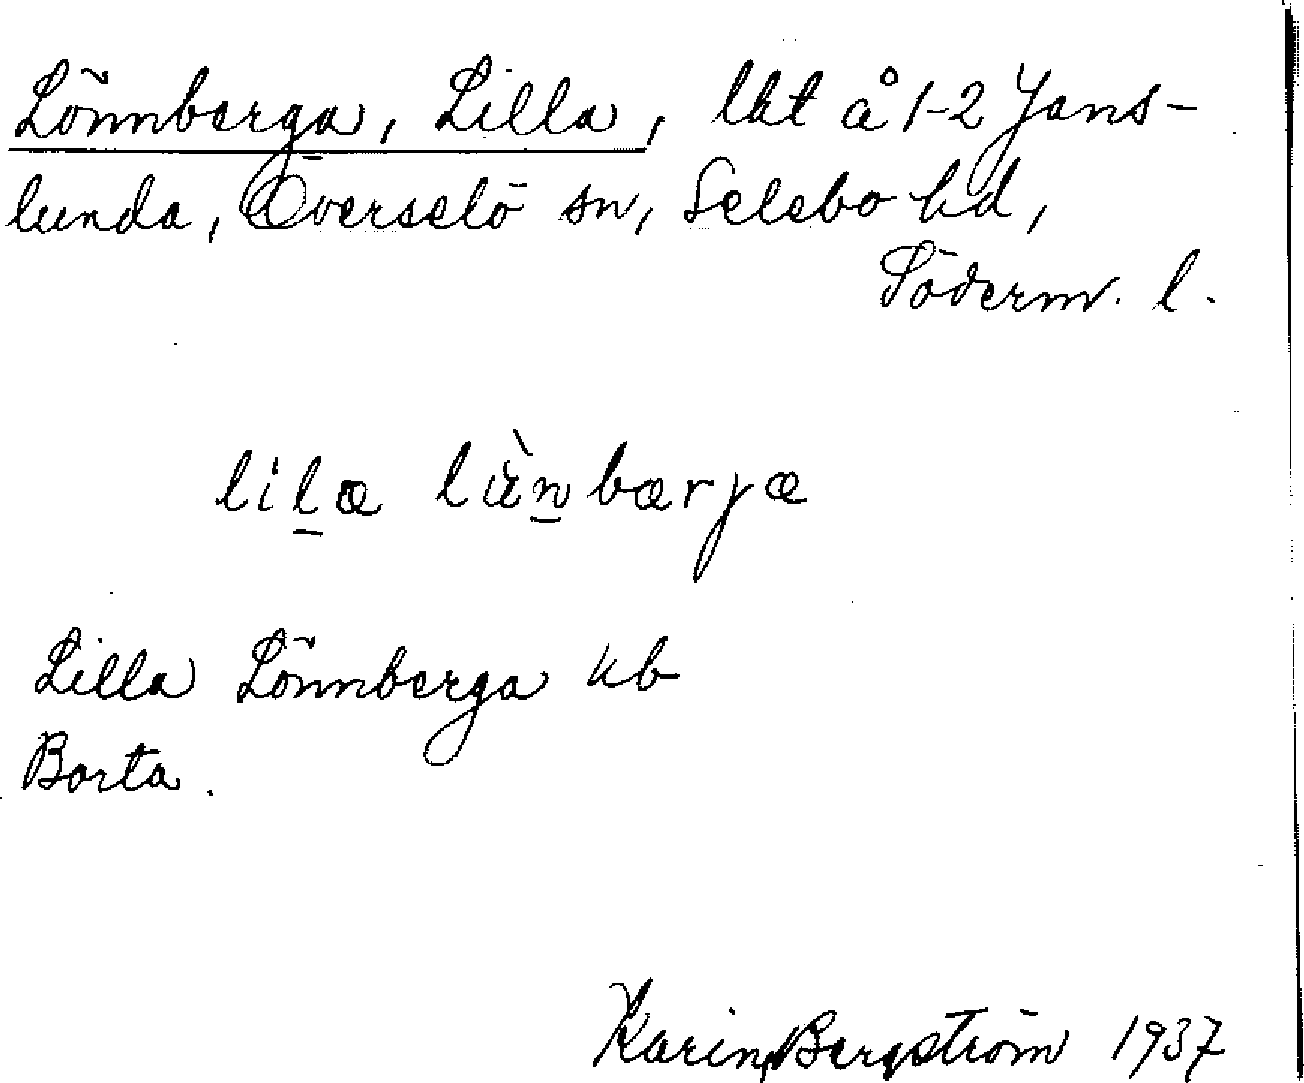 Lönnberga, Lilla, lht å 1-2 Jans-
lunda, Överselö sn, Selebo hd,
Söderm. l.
Lilla Lönnberga kb
Borta.
Karin Bergström 1937